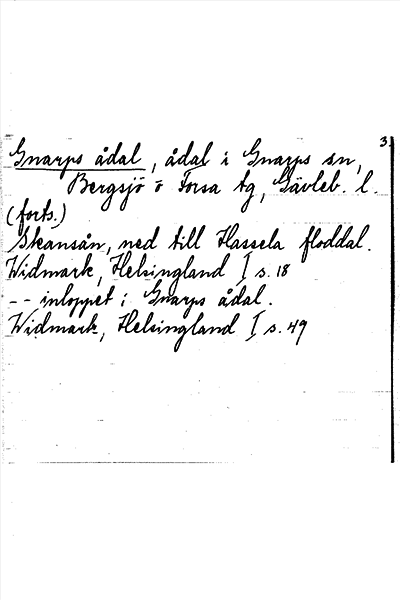 3.
Gnarps ådal, ådal i Gnarps sn,
Bergsjö o Forsa tg, Gävleb. l.
(forts.)
Skansån, ned till Hassela floddal.
Widmark, Helsingland I s. 18
-- inloppet i Gnarps ådal.
Widmark, Helsingland I s. 49